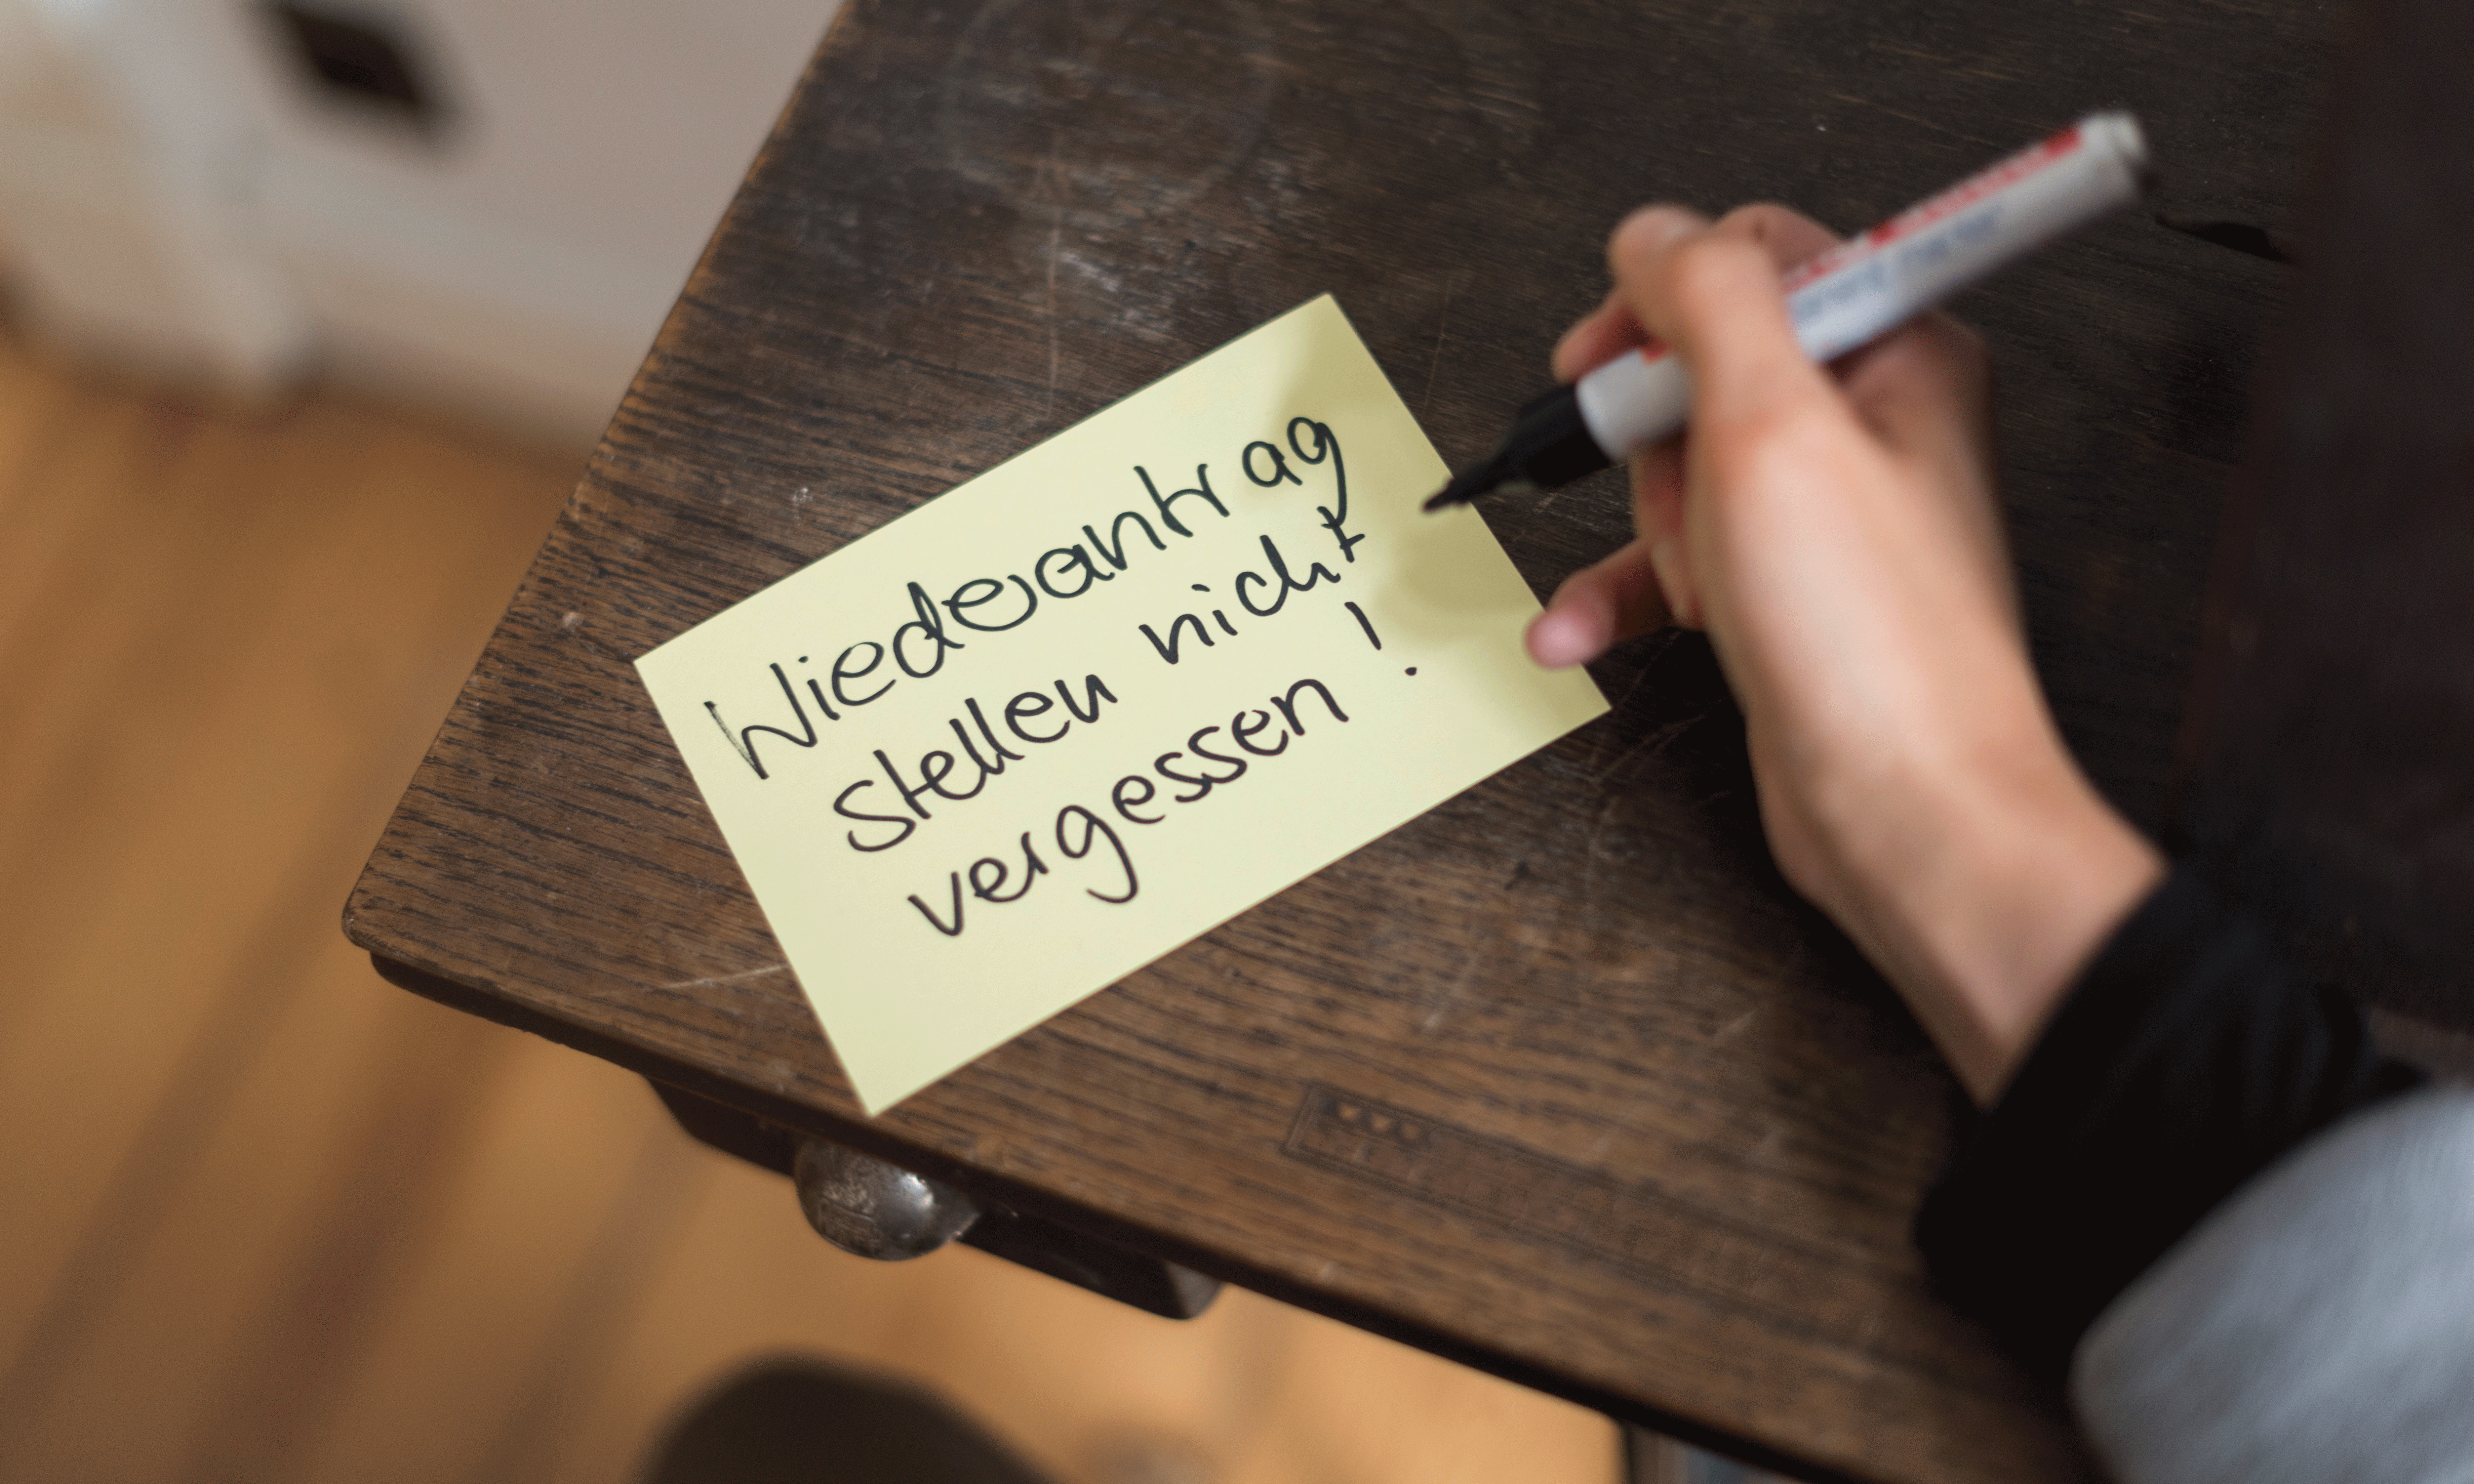 Wiederantrag
stellen nicht
vergessen !